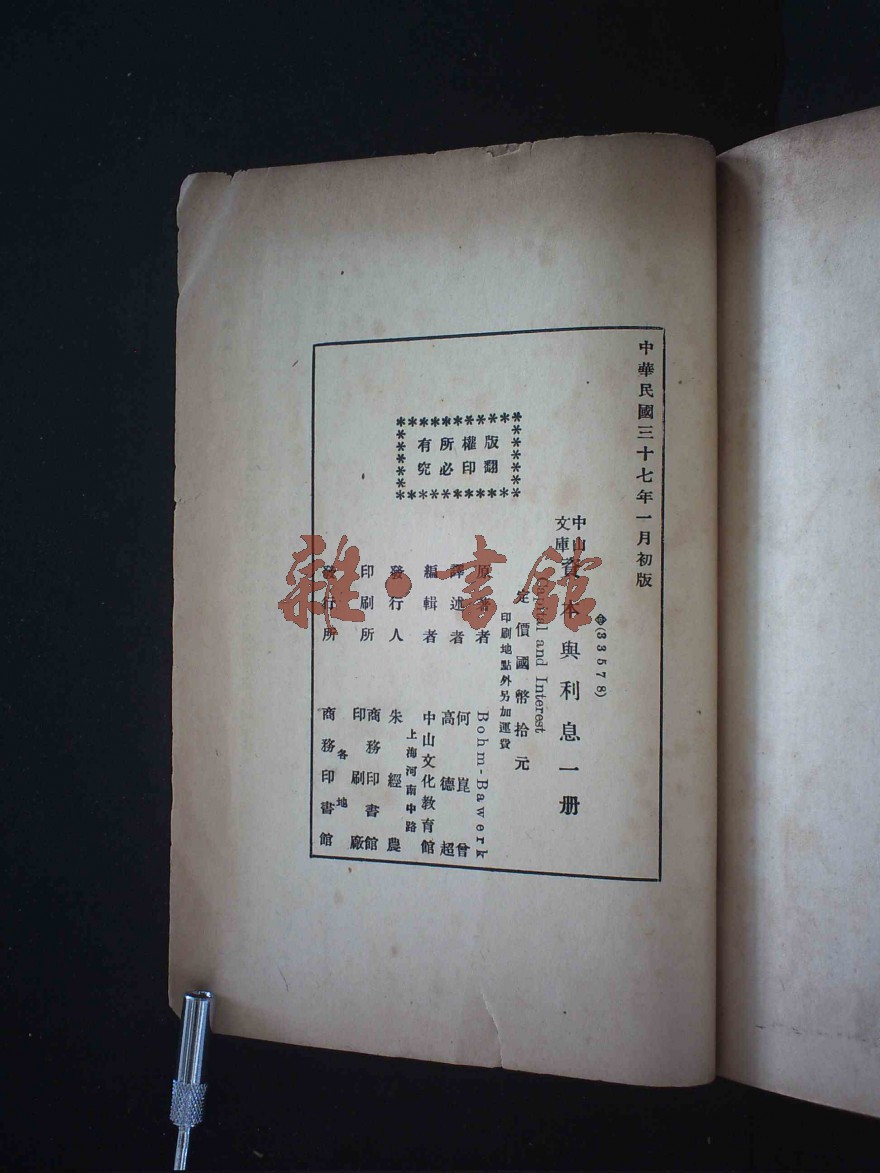 中華民國三十七年一月初版
(33578)
中山文庫 資本與利息一册
Capital and Interest
定價國幣拾元
印刷地點外另加運費
版權所有
翻印必究
原著者 Bohm-Bawerk
譯述者 何崑曾 高德超
編輯者 中山文化教育館
上海河南中路
發行人 朱經農
印刷所 商務印書館印刷廠
各地
發行所 商務印書館
雜·書館